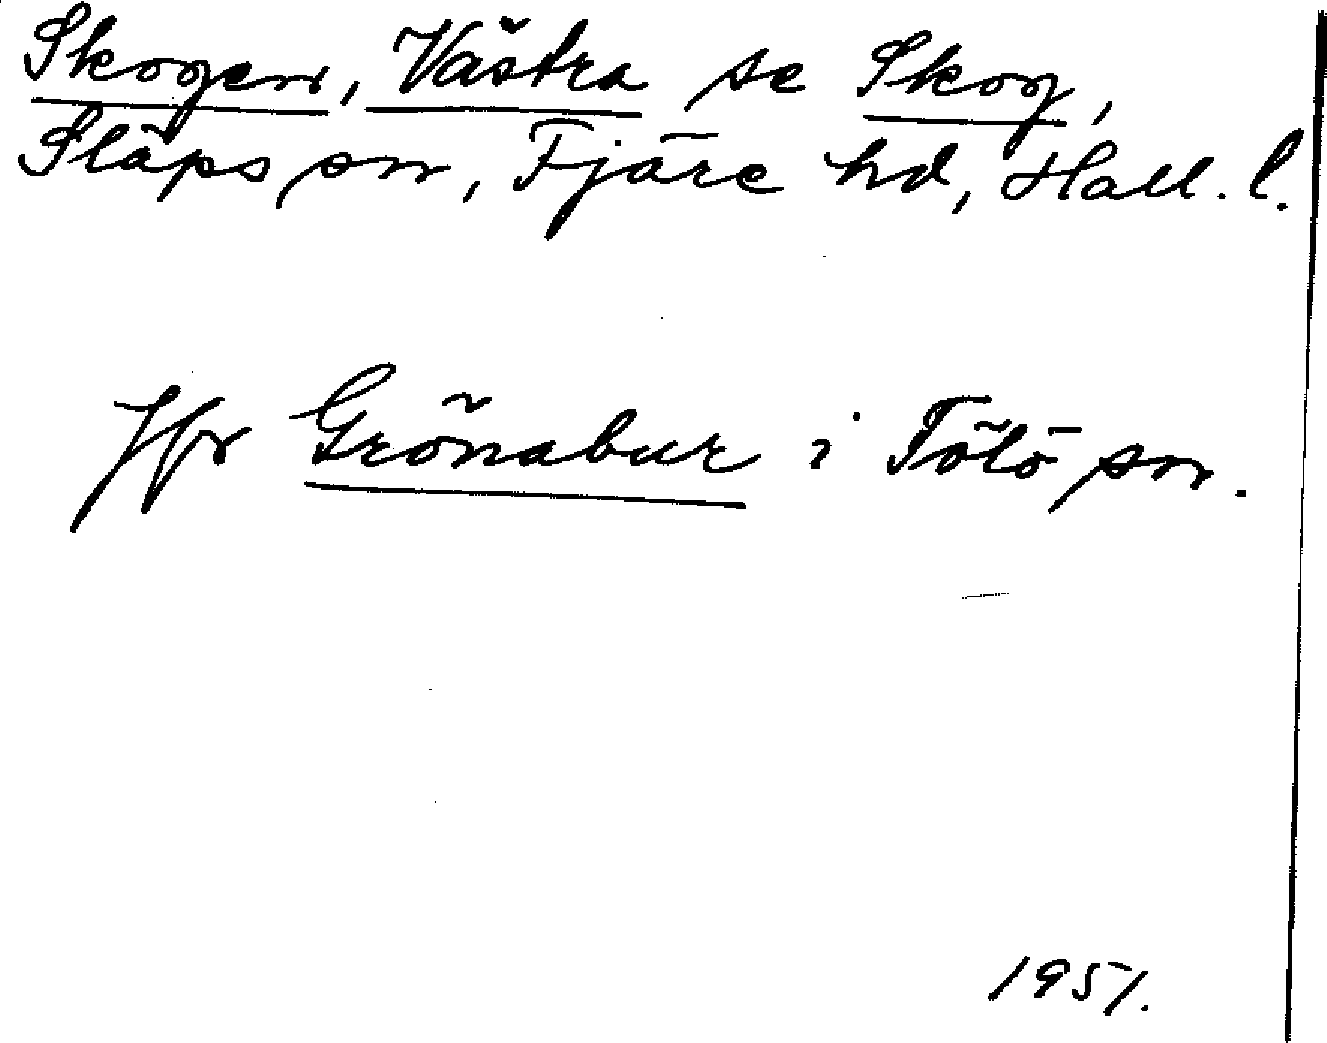 Skogen, Västra se Skog,
Släps sn, Fjäre hd, Hall. l.
Jfr Grönabur i Tölö sn.
1951.